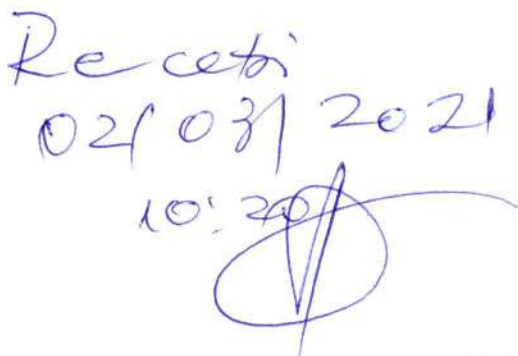 Recebi
02/03/2021
10:20